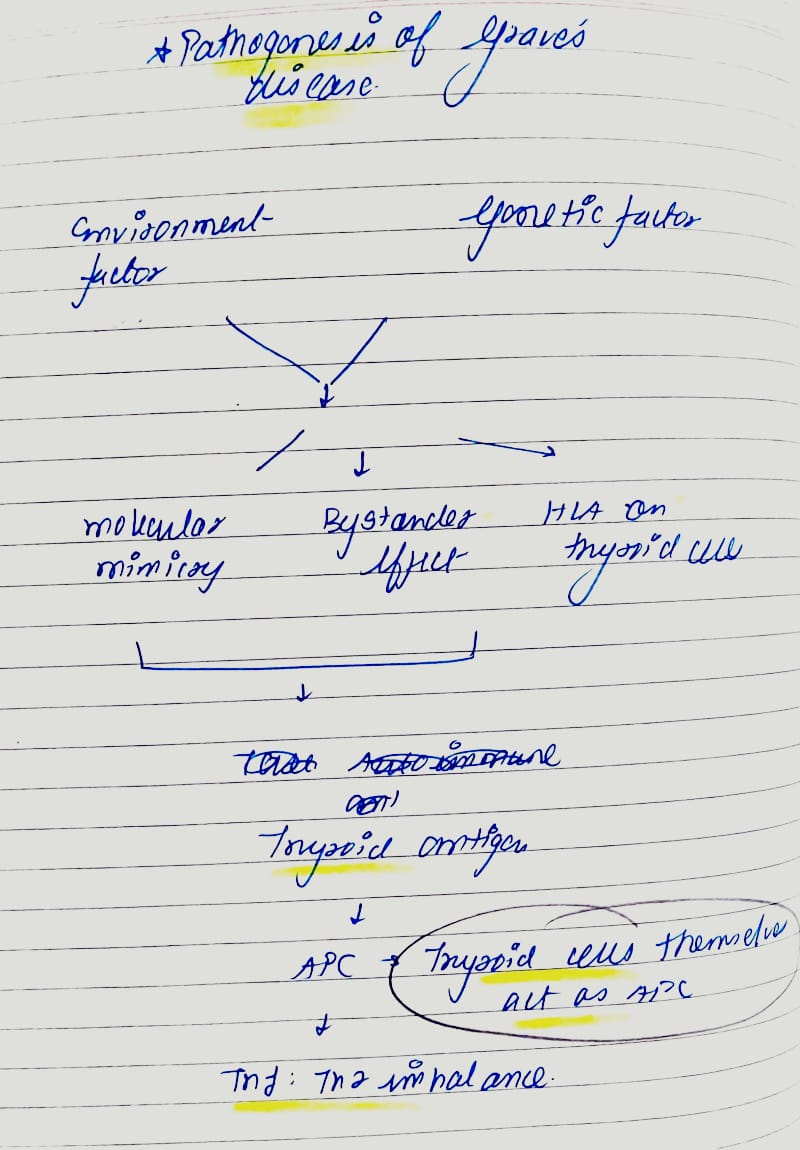 * Pathogenesis of Grave's
disease.
Environment
factor
Genetic factor
↓
↓
molecular
mimicry
Bystander
effect
HLA on
thyroid cell
↓
Autoimmune
Thyroid antigen
↓
APC → Thyroid cells themselve
act as APC
↓
Th1 : Th2 imbalance.